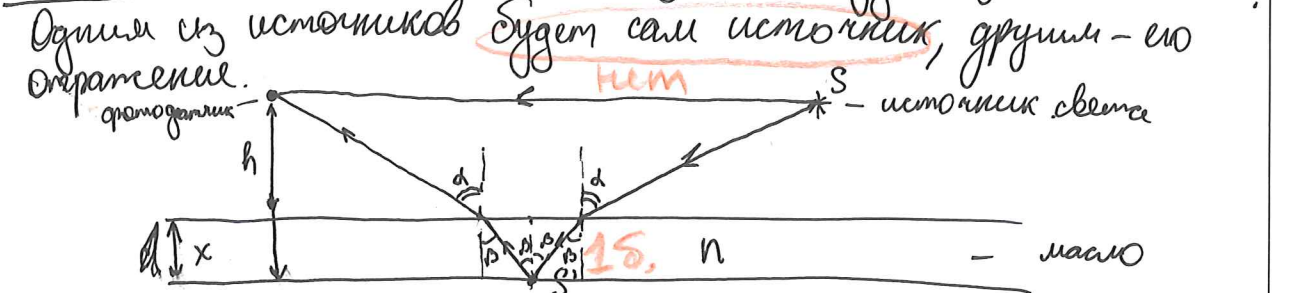 Одним из источников будет сам источник, другим – его
отражение.
нет
S
фотодатчик – – источник света
h
α α
x β β β β 1б. n – масло